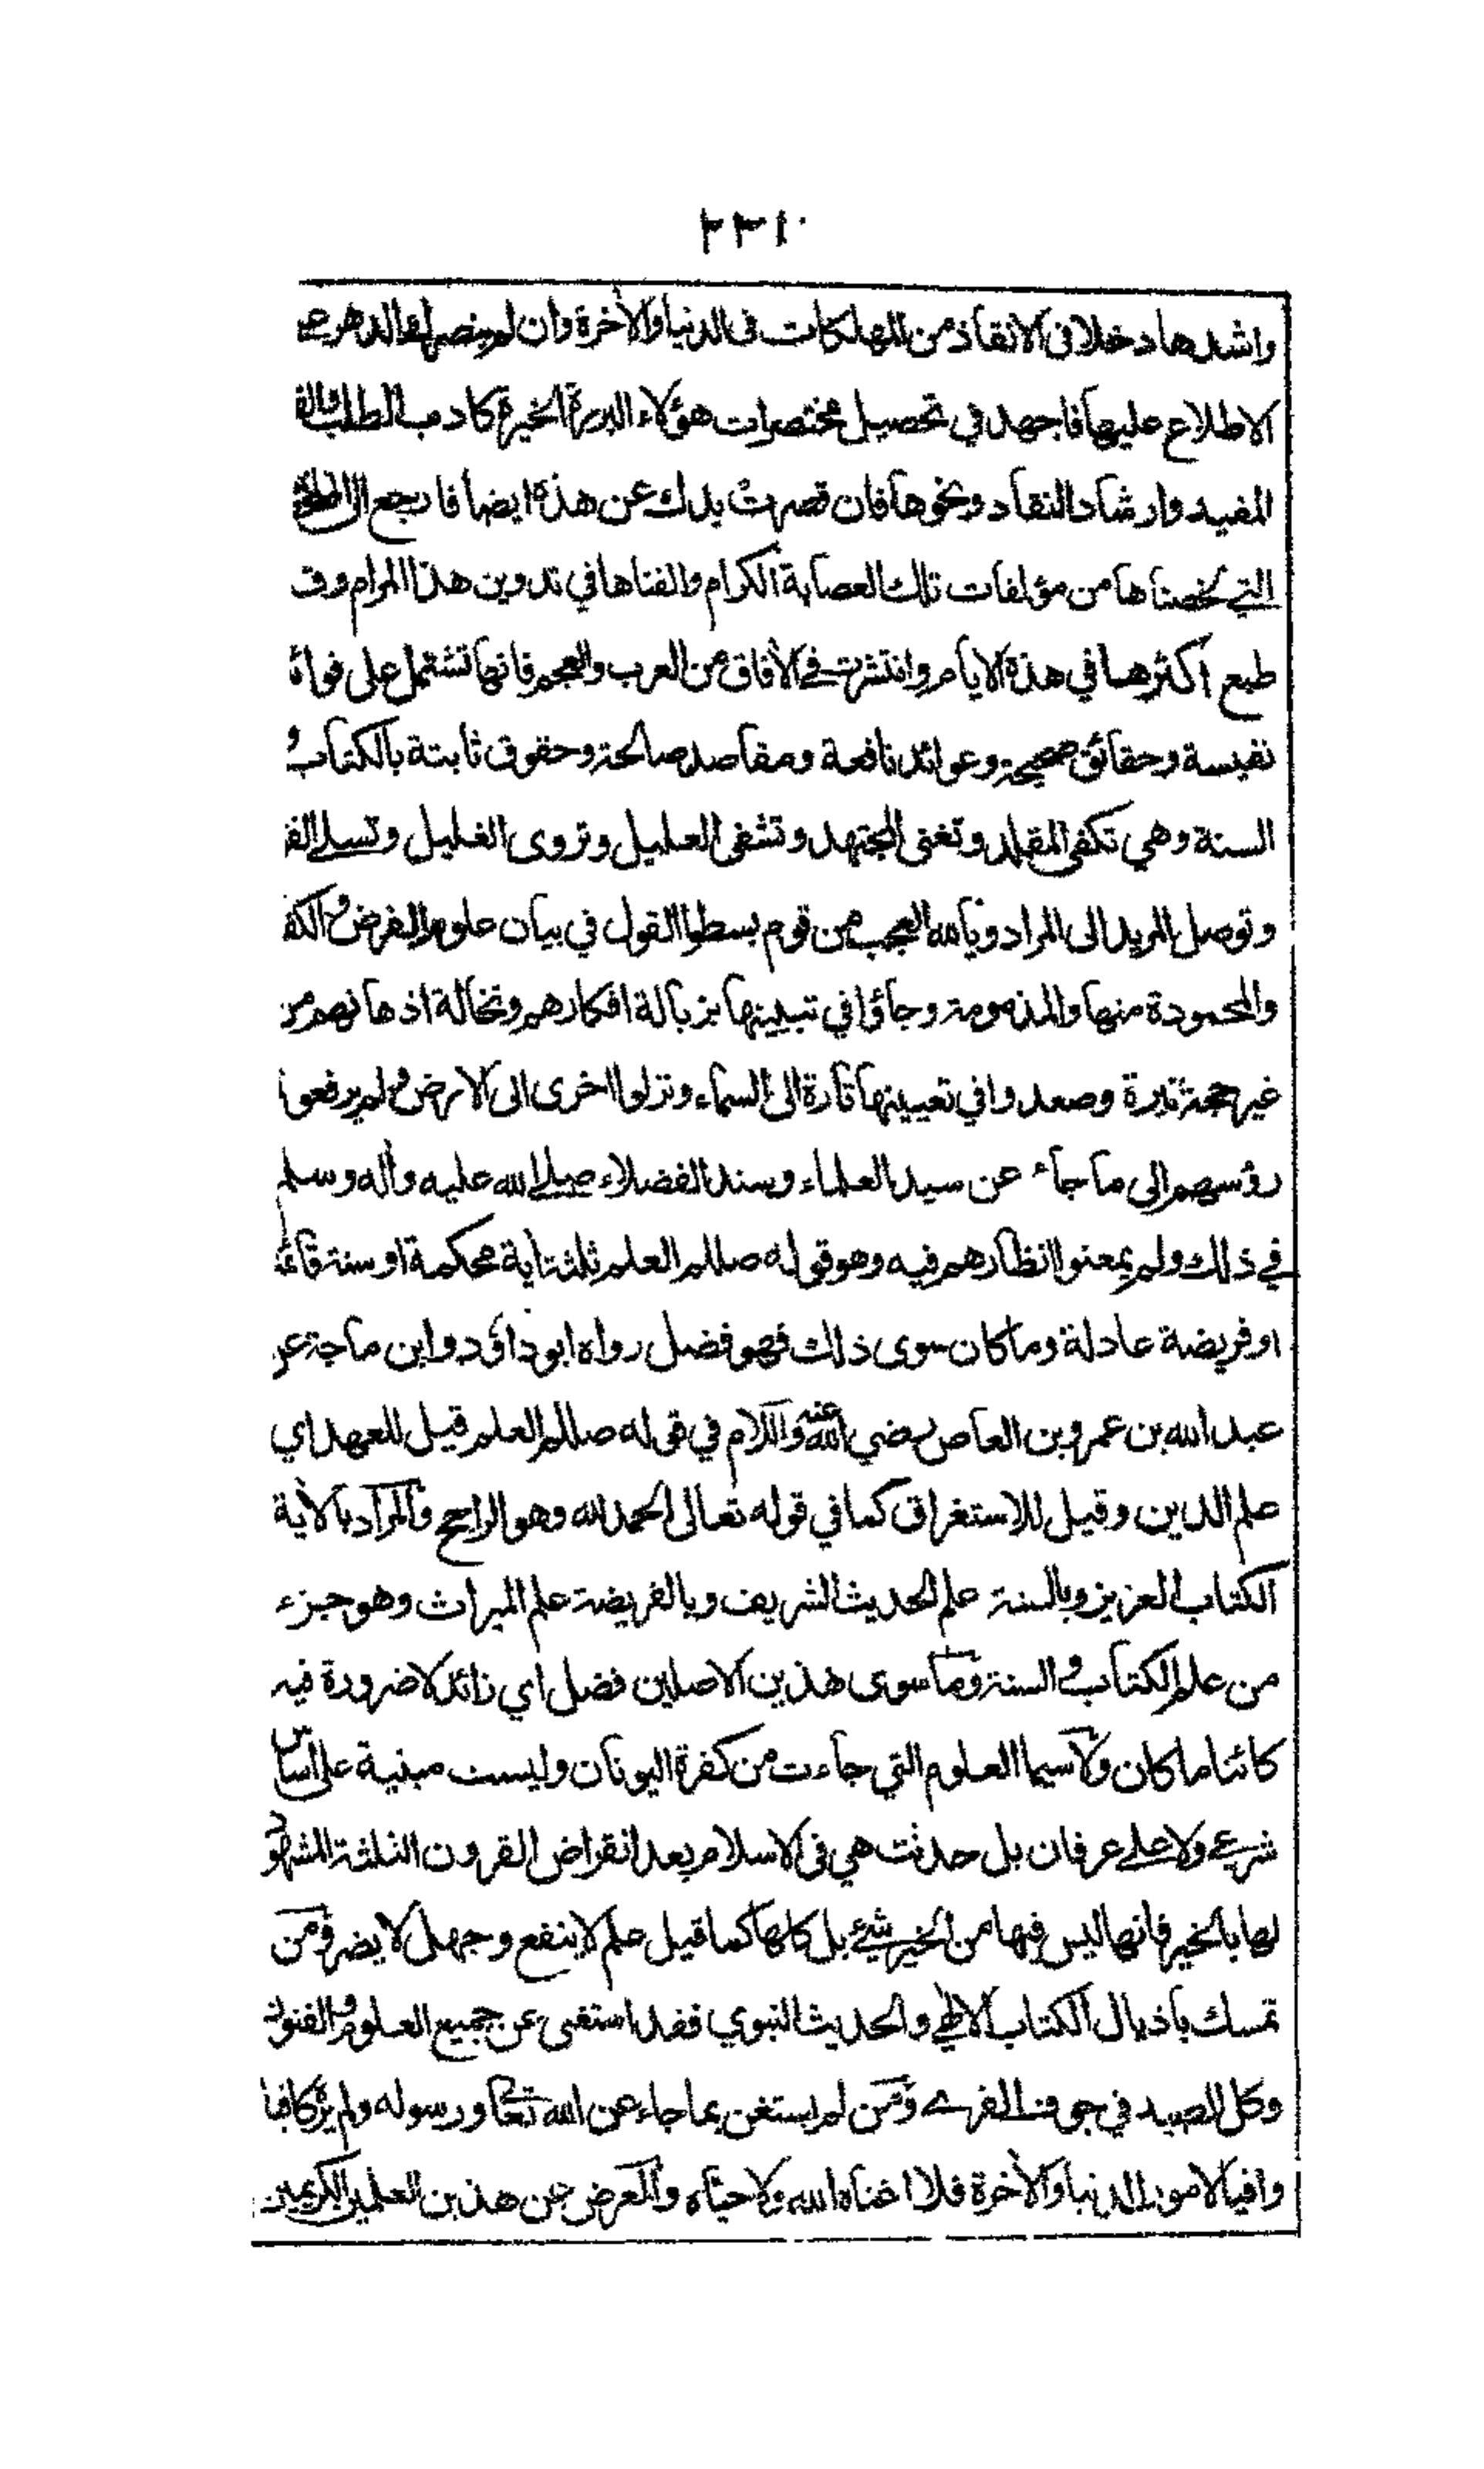 ٢٢١٠
واشدها دخلا فى الانقاذ من المهلكات فى الدنيا والآخرة وان لم ينصرك الدهر على
الاطلاع عليها فاجهد في تحصيل مختصرات هؤلاء البررة الخيرة كادب الطلب والقول
المفيد وارشاد النقاد ونحوها فان قصرت يدك عن هذه ايضا فارجع الى
التي لخصناها من مؤلفات تلك العصابة الكرام والفناها في تدوين هذا المرام وقد
طبع اكثرها في هذه الايام وانتشرت في الآفاق من العرب والعجم فانها تشتمل على فوائد
نفيسة وحقائق صحيحة وعوائد نافعة ومقاصد صالحة وحقوق ثابتة بالكتاب و
السنة وهي تكفى المقلد وتغنى المجتهد وتشفى العليل وتروى الغليل وتسلى
وتوصل المريد الى المراد ويالله العجب من قوم بسطوا القول في بيان علوم الفرض والكفاية
والمحمودة منها والمذمومة وجاؤا في تبيينها بزبالة افكارهم ونخالة اذهانهم من
غير حجة نيرة وصعدوا في تعيينها تارة الى السماء ونزلوا اخرى الى الارض ولم يرفعوا
رؤسهم الى ما جاء عن سيد العلماء وسند الفضلاء صلى الله عليه وآله وسلم
في ذلك ولم يمعنوا انظارهم فيه وهو قوله صللم العلم ثلثة آية محكمة او سنة قائمة
او فريضة عادلة وما كان سوى ذلك فهو فضل رواه ابو داؤد وابن ماجة عن
عبد الله بن عمرو بن العاص رضي الله عنه واللام في قوله صللم العلم قيل للعهد اي
علم الدين وقيل للاستغراق كما في قوله تعالى الحمد لله وهو الراجح والمراد بالآية
الكتاب العزيز وبالسنة علم الحديث الشريف وبالفريضة علم الميراث وهو جزء
من علم الكتاب والسنة وما سوى هذين الاصلين فضل اي زائد لا ضرورة فيه
كائنا ما كان ولا سيما العلوم التي جاءت من كفرة اليونان وليست مبنية على اساس
شرعي ولا على عرفان بل حدثت هي فى الاسلام بعد انقراض القرون الثلثة المشهود
لها بالخير فانها ليس فيها من الخير شيء بل كلها كما قيل علم لا ينفع وجهل لا يضر ومن
تمسك باذيال الكتاب الالهي والحديث النبوي فقد استغنى عن جميع العلوم والفنون
وكل الصيد في جوف الفرى ومن لم يستغن بما جاء عن الله تعالى ورسوله ولم يره كافيا
وافيا لامور الدنيا والآخرة فلا اغناه الله ولا حياه والمعرض عن هذين العلمين الكريمين